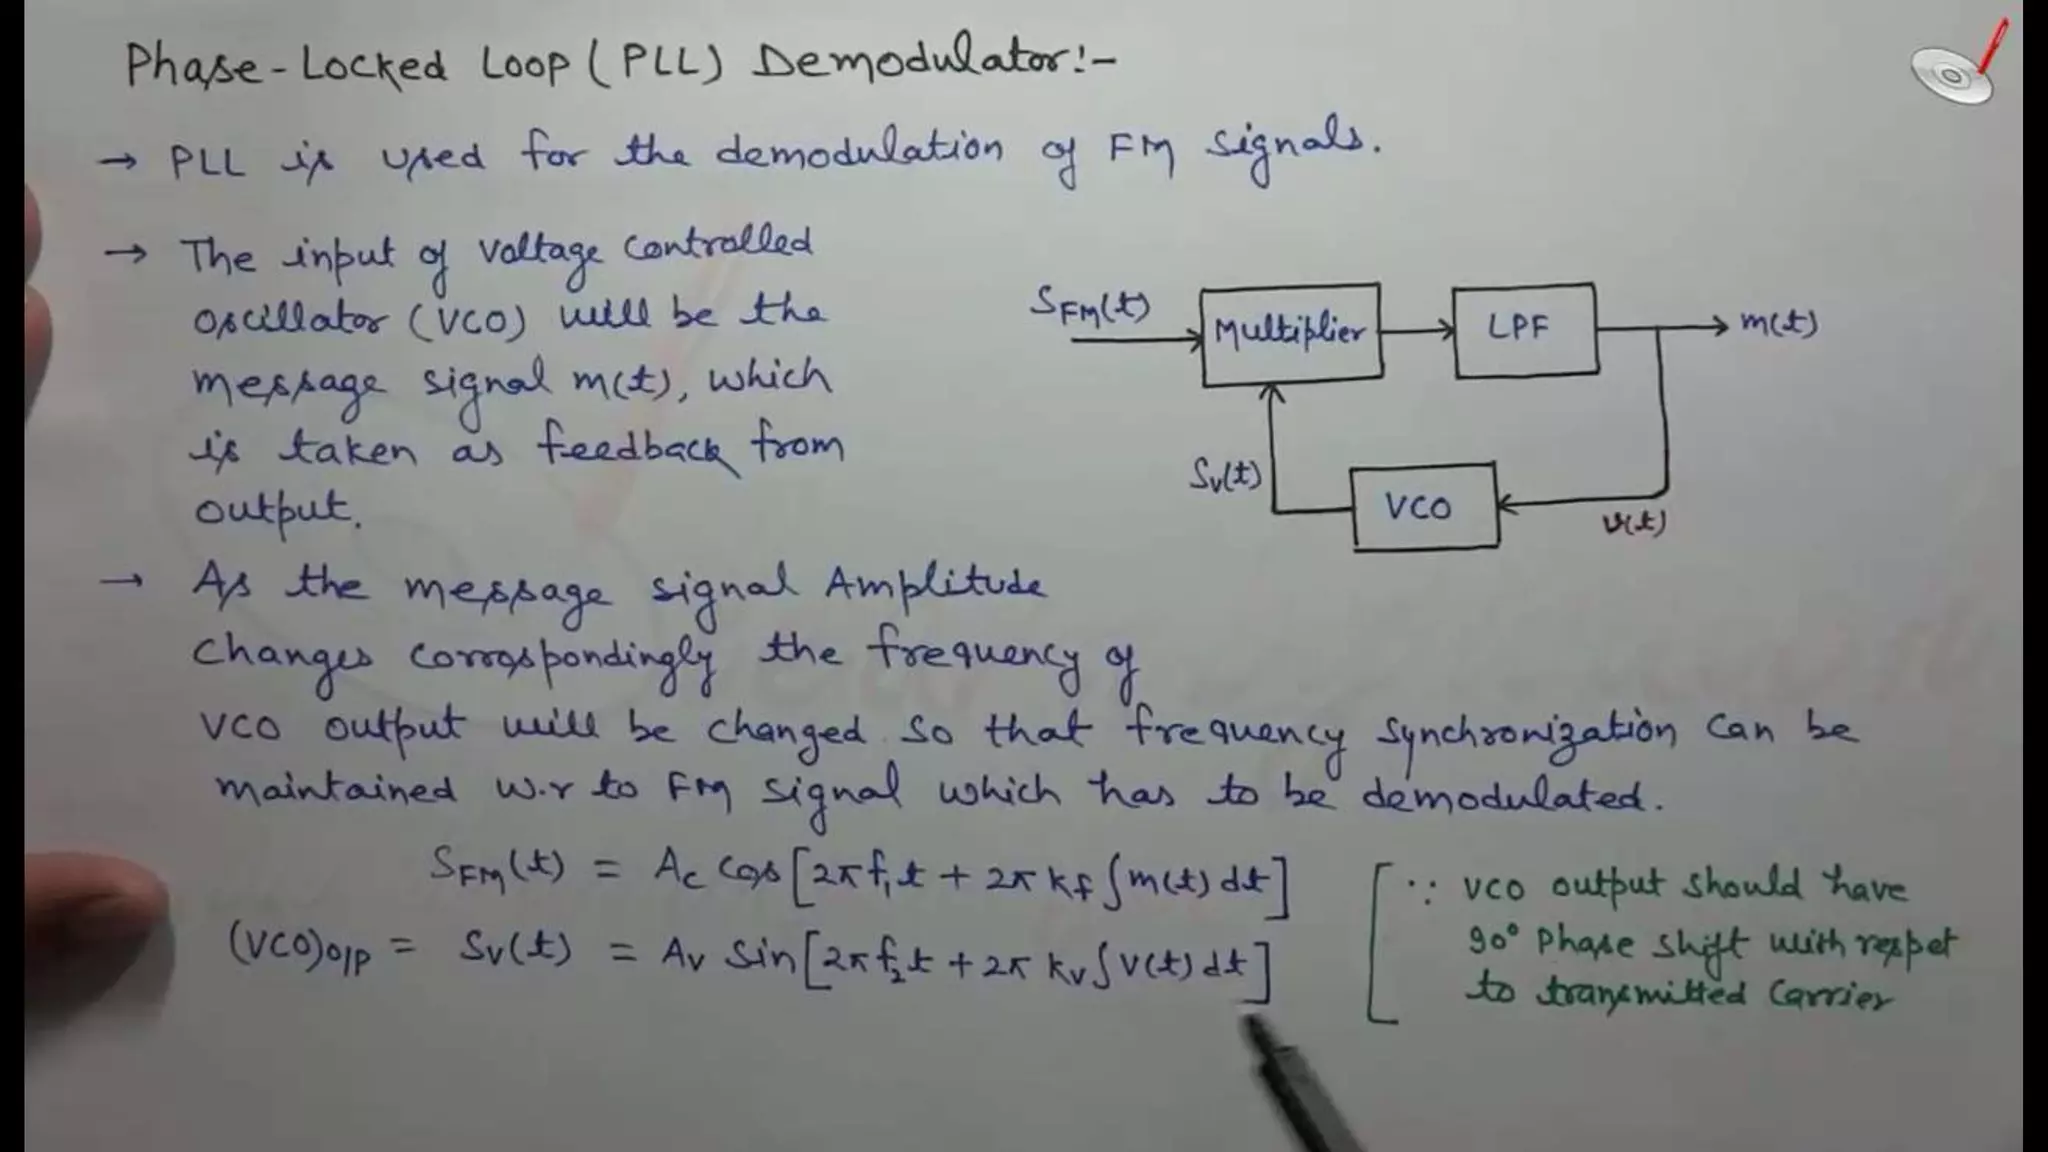 Phase-Locked Loop (PLL) Demodulator:-
→ PLL is used for the demodulation of FM signals.
→ The input of voltage controlled
oscillator (VCO) will be the
message signal m(t), which
is taken as feedback from
output.
S_FM(t)
Multiplier
LPF
m(t)
S_v(t)
VCO
v(t)
→ As the message signal Amplitude
changes correspondingly the frequency of
VCO output will be changed so that frequency synchronization can be
maintained w.r to FM signal which has to be demodulated.
S_FM(t) = A_c Cos[2π f_1 t + 2π k_f ∫m(t) dt]
(VCO)_O/P = S_v(t) = A_v Sin[2π f_2 t + 2π k_v ∫v(t) dt]
[∵ VCO output should have
90° Phase shift with respet
to transmitted Carrier